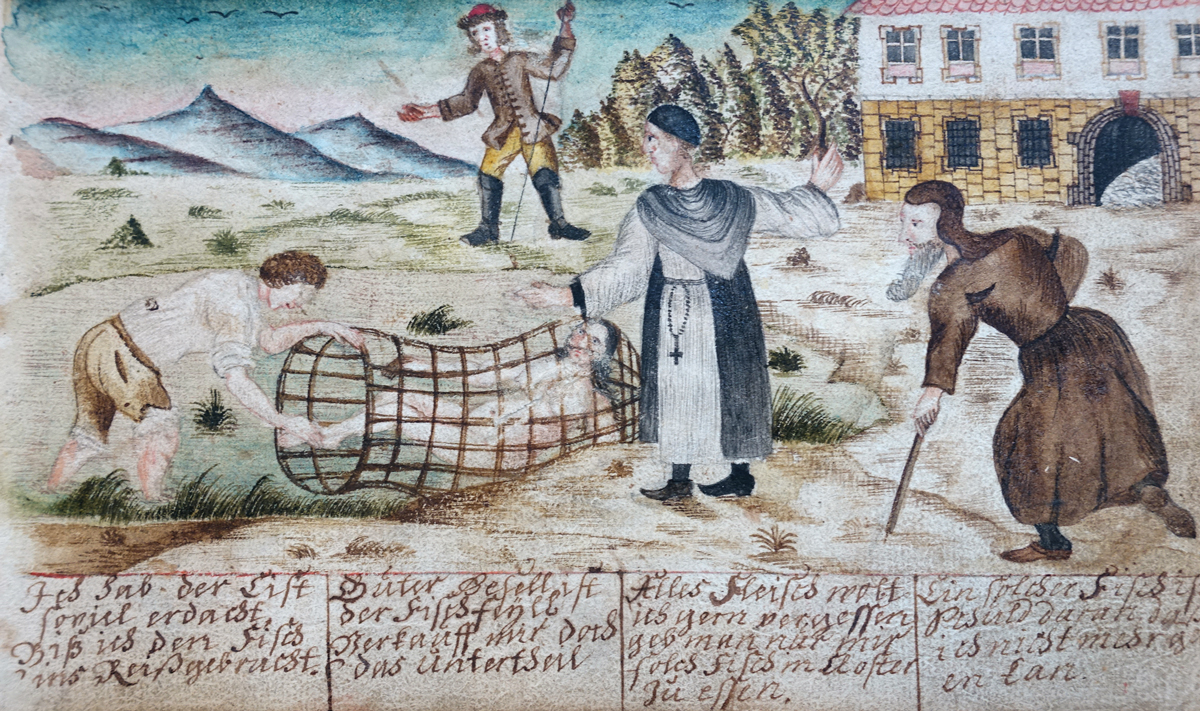 Ich hab der List
soviel erdacht,
Biß ich den Fisch
ins Reiß gebracht.
Guter Gesell ist
der Fisch feyll
Verkauff mir doch
das Untertheil
Alles Fleisch wolt
ich gern vergessen
geb man nur mir
solch Fisch im Closter
zu essen.
Ein solcher Fisch is
Schuld daran das
ich nicht mehr g
en kan.